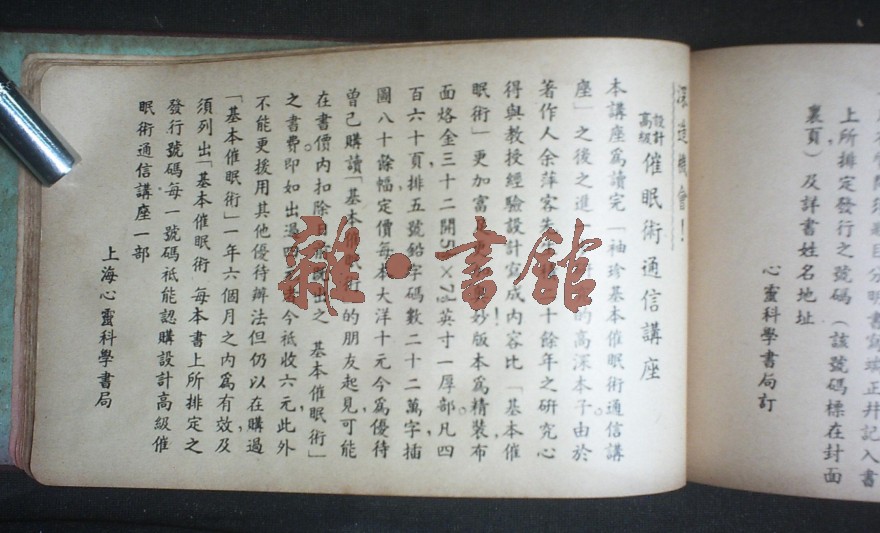 分明書寫填正并記入書
上所排定發行之號碼（該號碼標在封面
裏頁）及詳書姓名地址
心靈科學書局訂
深造機會！
設計高級催眠術通信講座
本講座爲讀完「袖珍基本催眠術通信講
座」之後之進的高深本子由於
著作人余萍客先十餘年之研究心
得與教授經驗設計寫成內容比「基本催
眠術」更加富妙版本爲精裝布
面烙金三十二開英寸一厚部凡四
百六十頁，排五號鉛字碼數二十二萬字插
圖八十餘幅定價每本大洋十元今爲優待
曾已購讀「基本術」的朋友起見可能
在書價內扣除出之 基本催眠術」
之書費即如出過今祗收六元，此外
不能更援用其他優待辦法但仍以在購過
「基本催眠術」一年六個月之內爲有效及
須列出「基本催眠術 每本書上所排定之
發行號碼每一號碼祗能認購設計高級催
眠術通信講座一部
上海心靈科學書局
雜·書館